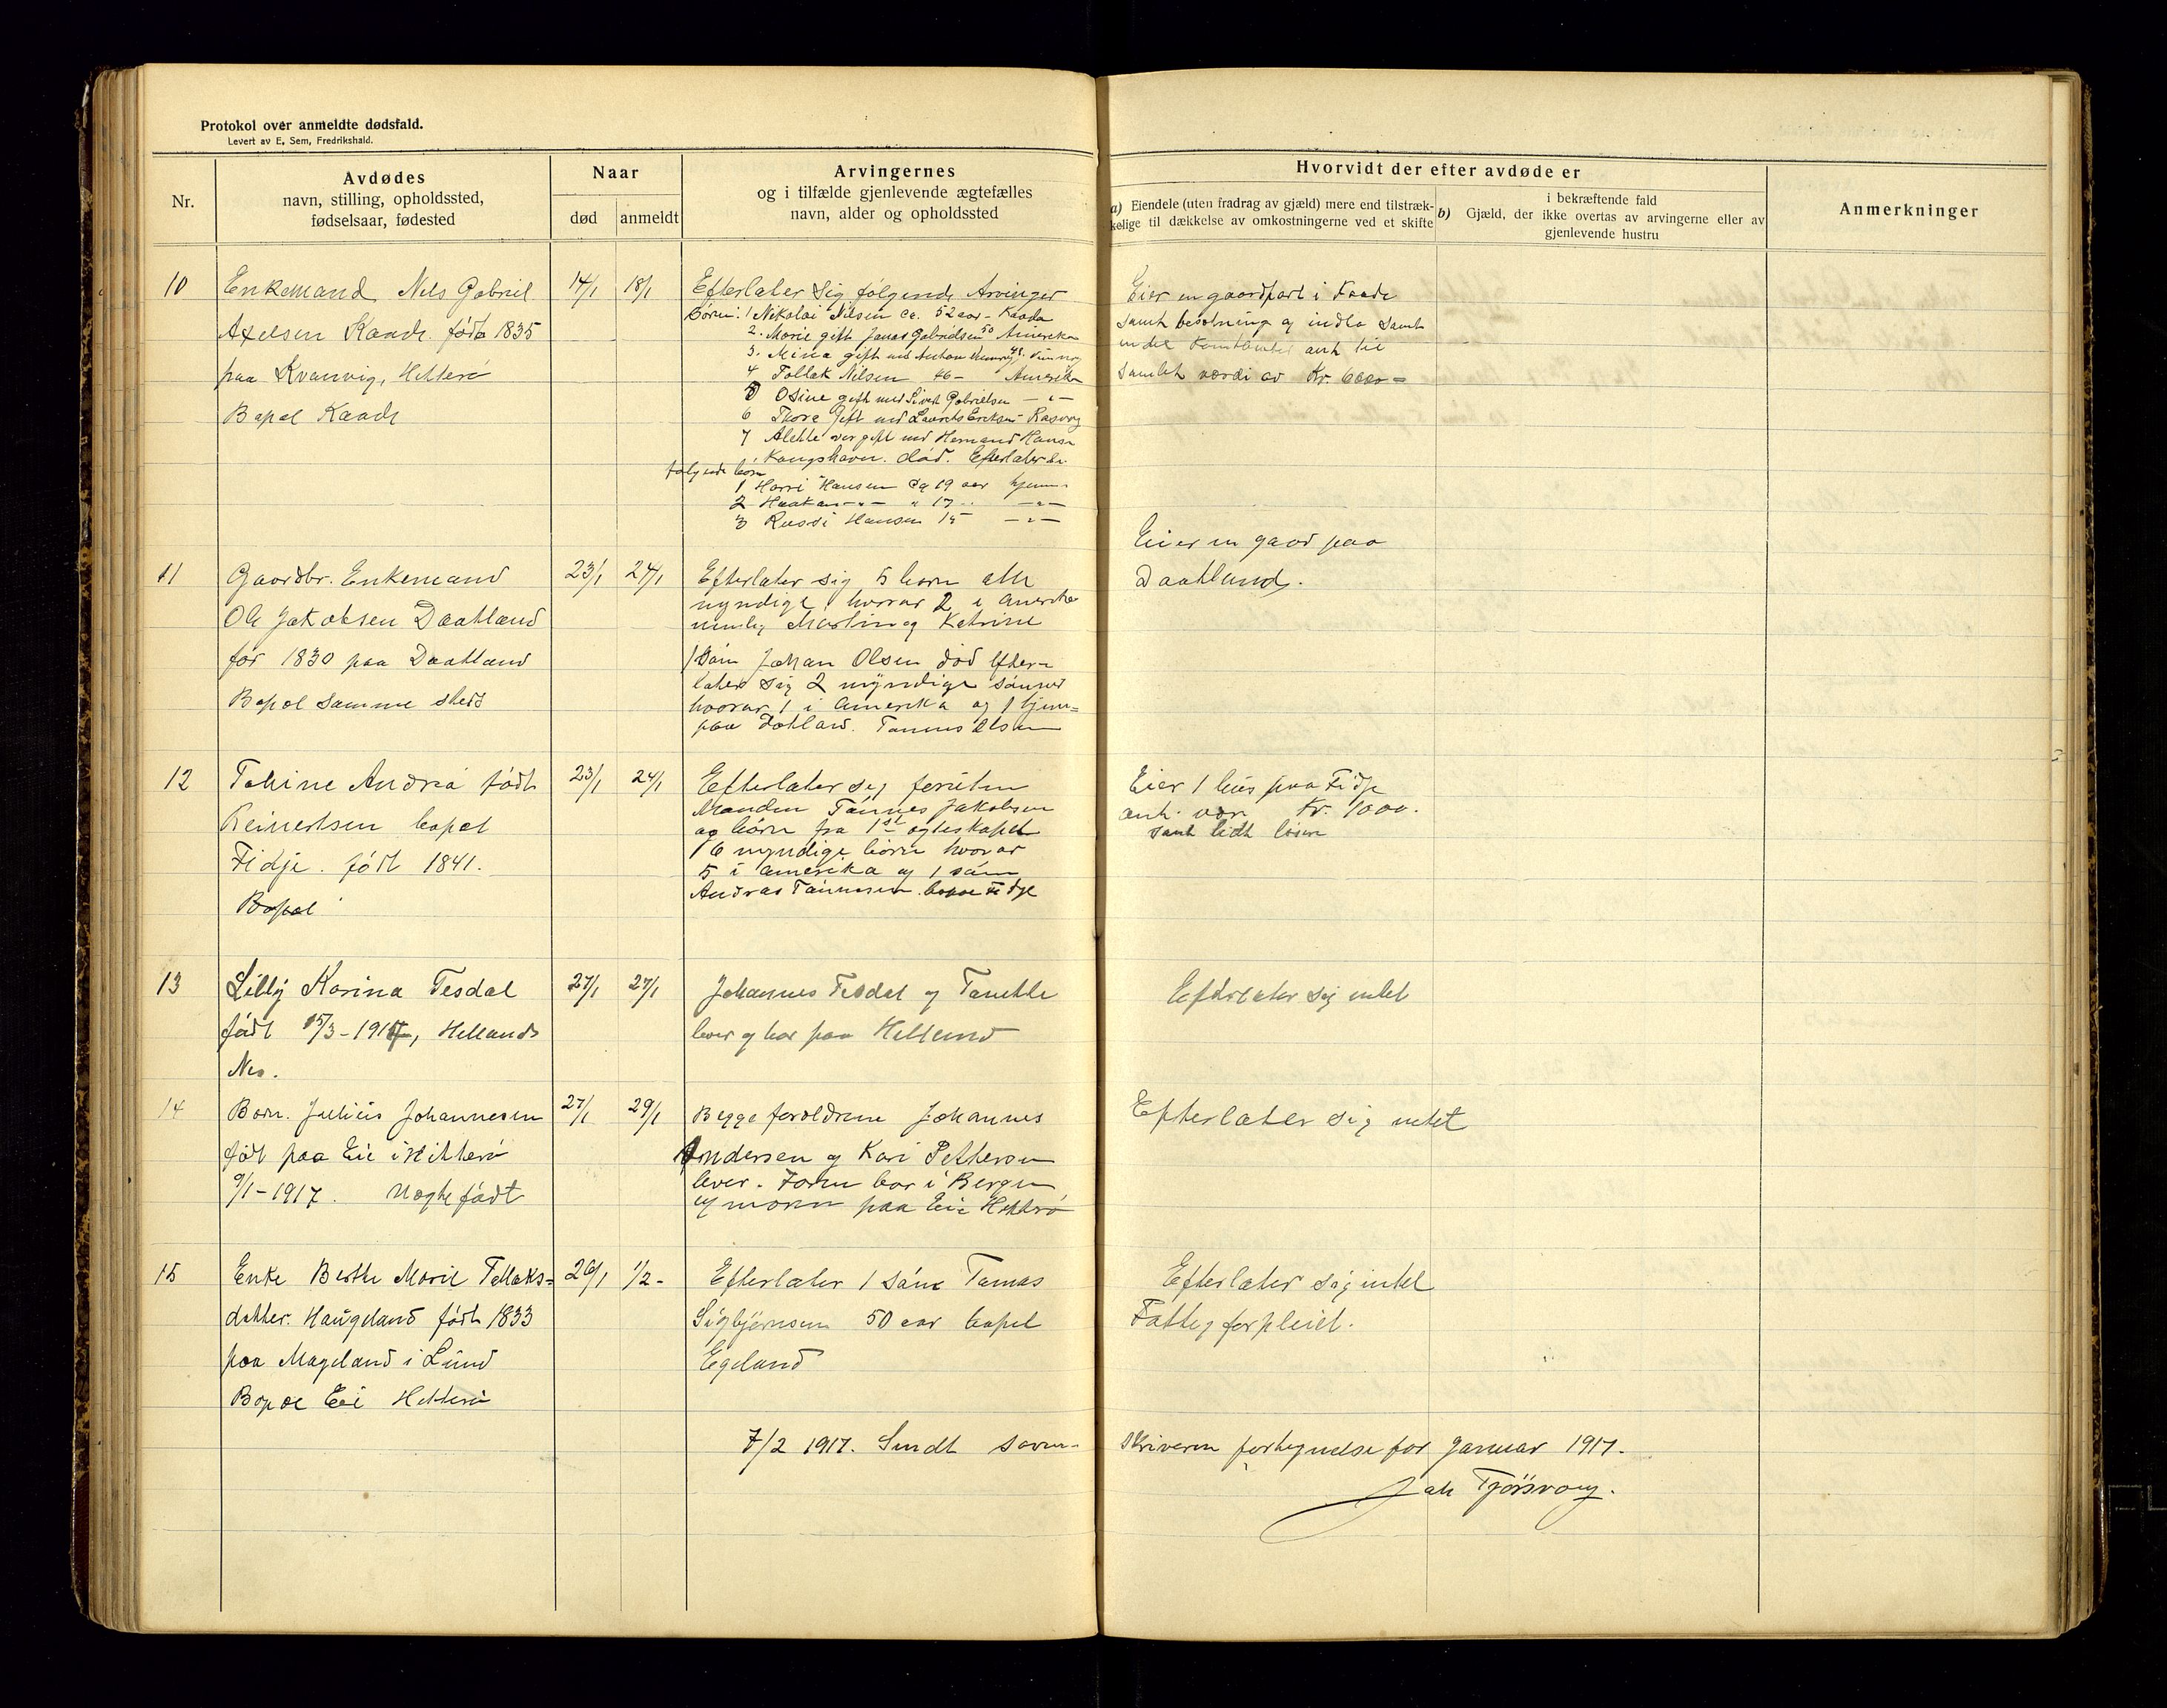 Protokol over anmeldte dødsfald.
Levert av E. Sem, Fredrikshald.
Nr.
Avdødes
navn, stilling, opholdssted,
fødselsaar, fødested
Naar
død
anmeldt
Arvingernes
og i tilfælde gjenlevende ægtefælles
navn, alder og opholdssted
Hvorvidt der efter avdøde er
a) Eiendele (uten fradrag av gjæld) mere end tilstræk-
kelige til dækkelse av omkostningerne ved et skifte
b) i bekræftende fald
Gjæld, der ikke overtas av arvingerne eller av
gjenlevende hustru
Anmerkninger
10
Enkemand Nils Gabriel
Axelsen Kaade. født 1835
paa Kvanvig, Hitterö
Bopæl Kaade
14/1
18/1
Efterlater sig følgende Arvinger
Børn: 1 Nikolai Nilsen ca. 52 aar - Kaada
2. Marie gift Jonas Gabrielsen 50 Amerika
3. Mina gift med Anton
4 Tollak Nilsen 46 - Amerika
5 Osine gift med Sivert Gabrielsen - " -
6 Thora gift med Laurits Eriksen Rasvog
7 Alette var gift med Hermand Hansen
Kongshavn. død. Efterlater sig
følgende børn
1 Harri Hansen ca 19 aar hjemme
2 Haakon - " - " 17 " - " -
3 Russi Hansen 15 - " -
Eier en gaardpart i Kaade
samt besætning og indbo samt
endel ant til
samlet værdi av Kr. 6000 =
11
Gaardbr. Enkemand
Ole Jakobsen Daatland
før 1830 paa Daatland
Bopæl samme sted
23/1
24/1
Efterlater sig 5 barn alle
myndige hvorav 2 i Amerika
nemlig Martin og Katrine
1 Søn Johan Olsen død Efter-
later sig 2 myndige sønner
hvorav 1 i Amerika og 1 hjem=
paa Dotland. Tønnes Olsen
Eier en gaard paa
Daatland.
12
Tobine Andrea født
Reinertsen bopæl
Fidje. født 1841.
Bopæl
23/1
24/1
Efterlater sig foruten
Manden Tønnes Jakobsen
og børn fra 1st ægteskapet
6 myndige börn hvorav
5 i Amerika og 1 søn
Andreas Tønnesen. bopæl Fidje
Eier 1 hus paa Fidje
ant. vær Kr. 1000.
samt lidt løsøre
13
Lilly Karina Tesdal
født 15/3-1917, Hellands
Nes.
27/1
27/1
Johannes Tesdal og Tanette
lever og bor paa Helland
Efterlater sig intet
14
Barn. Julius Johannesen
født paa Eie i Hitterö
9/1-1917. Uægte født
27/1
29/1
Begge forældrene Johannes
Andersen og Kari Pettersen
lever. Faren bor i Bergen
og moren paa Eie Hitterö
Efterlater sig intet
15
Enke Berthe Marie Tollaks=
datter. Haugeland født 1833
paa Mageland i Lund
Bopæl Eie Hitterö
26/1
1/2-
Efterlater 1 søn Tomas
Sigbjørnsen 50 aar bopæl
Egeland
Efterlater sig intet
Fattig forpleiet.
7/2 1917. Sendt soren-
skriveren fortegnelse for Januar 1917.
Jak Tjörsvaag.